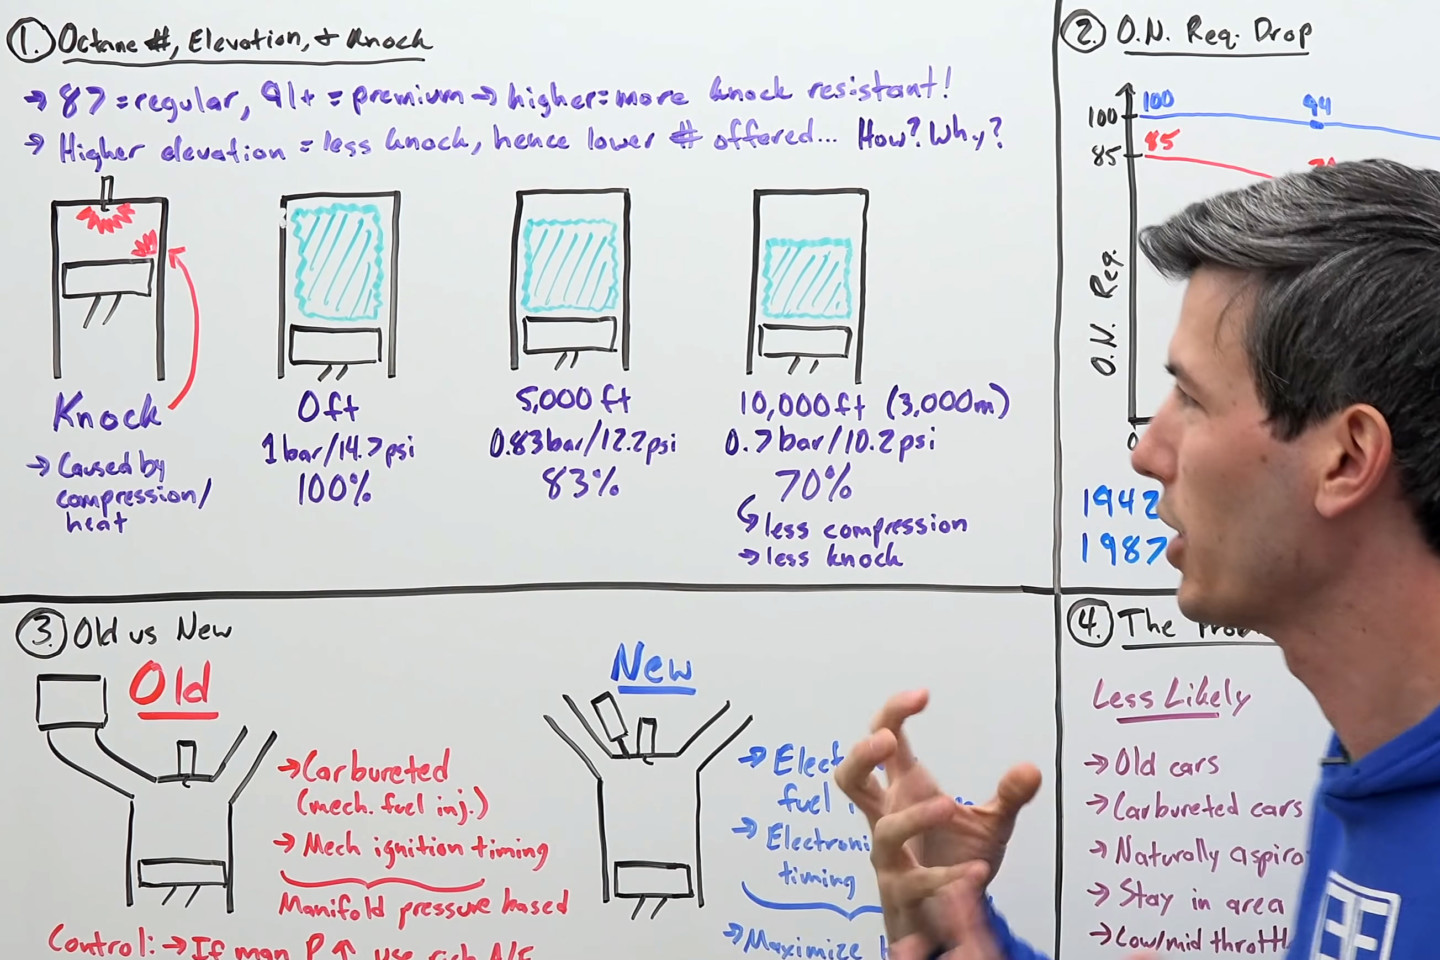 1. Octane #, Elevation, + Knock
→ 87 = regular, 91+ = premium → higher = more knock resistant!
→ Higher elevation = less knock, hence lower # offered... How? Why?
Knock
→ Caused by
compression/
heat
0ft
1 bar/14.7psi
100%
5,000 ft
0.83bar/12.2psi
83%
10,000ft (3,000m)
0.7bar/10.2psi
70%
↳ less compression
→ less knock
2. O.N. Req. Drop
100
94
100
85
85
O.N. Req.
0
1942
1987
3. Old vs New
Old
→ Carbureted
(mech. fuel inj.)
→ Mech ignition timing
Manifold pressure based
Control: → If man P ↑ use rich A/F
New
→ Elect
fuel
→ Electroni
timing
→ Maximize
4. The
Less Likely
→ Old cars
→ Carbureted cars
→ Naturally aspira
→ Stay in area
→ Low/mid throttl